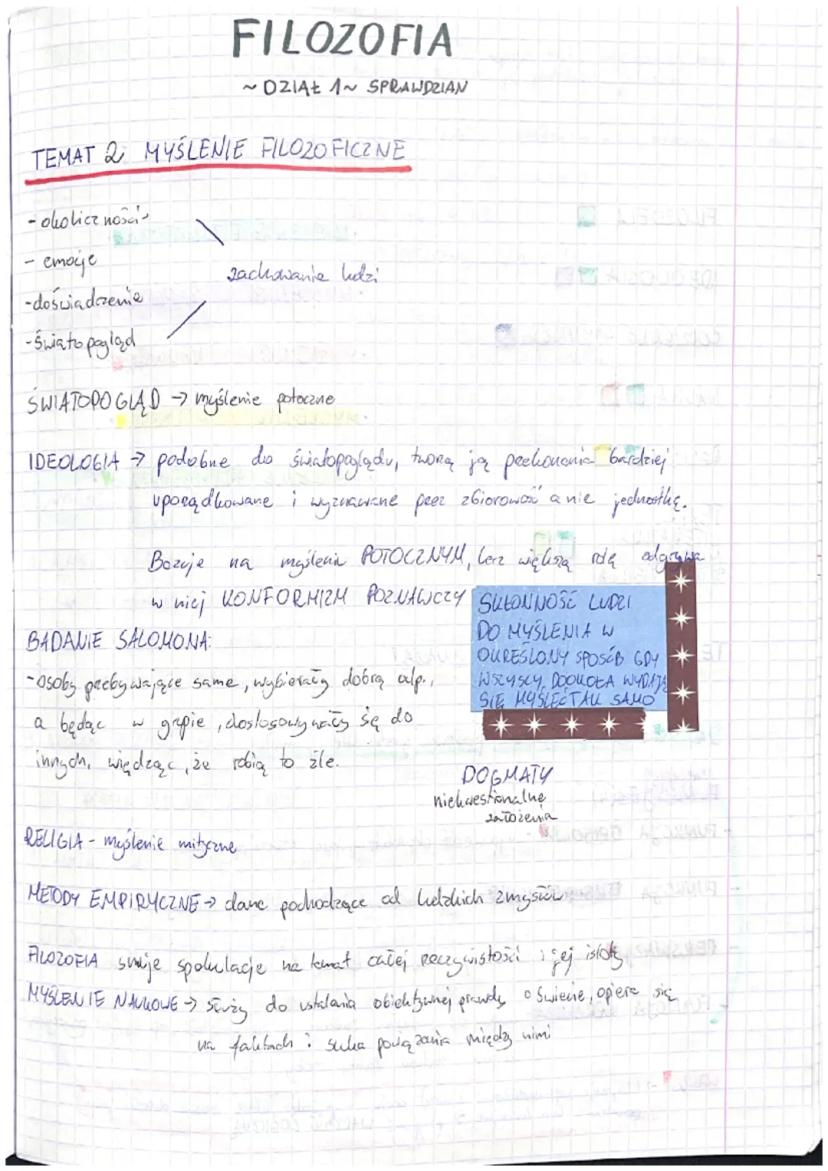 FILOZOFIA
~ DZIAŁ 1 ~ SPRAWDZIAN
TEMAT 2 MYŚLENIE FILOZOFICZNE
- okoliczności
- emocje
zachowanie ludzi
- doświadczenie
- światopogląd
ŚWIATOPOGLĄD → myślenie potoczne
IDEOLOGIA → podobne do światopoglądu, tworzą ją przekonania bardziej
uporządkowane i wyznawane przez zbiorowość a nie jednostkę.
Bazuje na myśleniu POTOCZNYM, lecz większą rolę odgrywa
w niej KONFORMIZM POZNAWCZY
SKŁONNOŚĆ LUDZI
DO MYŚLENIA W
OKREŚLONY SPOSÓB GDY
WSZYSCY DOOKOŁA WYDAJĄ
SIĘ MYŚLEĆ TAK SAMO
BADANIE SALOMONA:
- osoby przebywające same, wybierały dobrą odp.,
a będąc w grupie, dostosowywały się do
innych, wiedząc, że robią to źle.
DOGMATY
niekwestionalne
założenia
RELIGIA - myślenie mityczne
METODY EMPIRYCZNE → dane pochodzące od ludzkich zmysłów
FILOZOFIA snuje spekulacje na temat całej rzeczywistości i jej istoty
MYŚLENIE NAUKOWE → służy do ustalania obiektywnej prawdy o świecie, opiera się
na faktach i szuka powiązania między nimi